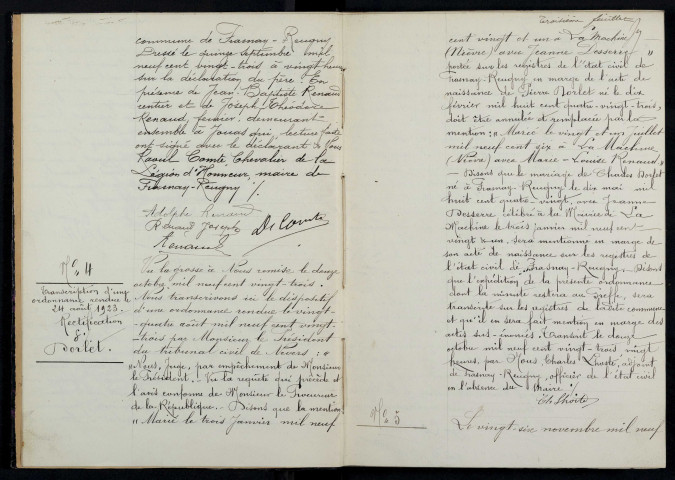 commune de Frasnay-Reugny
Dressé le quinze septembre mil
neuf cent vingt-trois à vingt heures
sur la déclaration du père. En
présence de Jean-Baptiste Renaud
rentier et de Joseph Théodore
Renaud, fermier, demeurant
ensemble à qui, lecture faite
ont signé avec le déclarant & Nous
Raoul Comte Chevalier de la
Légion d'Honneur, maire de
Frasnay-Reugny ./.
Adolphe Renaud
Renaud Joseph
Renaud
Dr Comte
No 4
Transcription d'une
ordonnance rendue le
24 août 1923.
Rectification
Borlet.
Vu la grosse à Nous remise le douze
octobre mil neuf cent vingt-trois.
Nous transcrivons ici le dispositif
d'une ordonnance rendue le vingt-
quatre août mil neuf cent vingt-
trois par Monsieur le Président
du tribunal civil de Nevers : "
" Nous, Juge, par empêchement de Monsieur
le Président. - Vu la requête qui précède et
l'avis conforme de Monsieur le Procureur
de la République. - Disons que la mention
" Marié le trois Janvier mil neuf
Troisième feuillet
cent vingt et un à La Machine
(Nièvre) avec Jeanne Desserre "
portée sur les registres de l'état civil de
Frasnay-Reugny en marge de l'acte de
naissance de Pierre Borlet né le dix
février mil huit cent quatre-vingt-trois,
doit être annulée et remplacée par la
mention : " Marié le vingt et un juillet
mil neuf cent six à La Machine
(Nièvre) avec Marie-Louise Renaud "
- Disons que le mariage de Charles Borlet
né à Frasnay-Reugny le dix mai mil
huit cent quatre-vingt, avec Jeanne
Desserre célébré à la Mairie de La
Machine le trois janvier mil neuf cent
vingt & un, sera mentionné en marge de
son acte de naissance sur les registres de
l'état civil de Frasnay-Reugny. Disons
que l'expédition de la présente ordonnance
dont la minute restera au Greffe, sera
transcrite sur les registres de ladite commune
et qu'il en sera fait mention en marge des
actes sus-énoncés. Transcrit le douze
octobre mil neuf cent vingt-trois vingt
heures, par Nous, Charles Lhoste, adjoint
de Frasnay-Reugny, officier de l'état civil
en l'absence du Maire ./.
Ch Lhoste
No 5
Le vingt-six novembre mil neuf